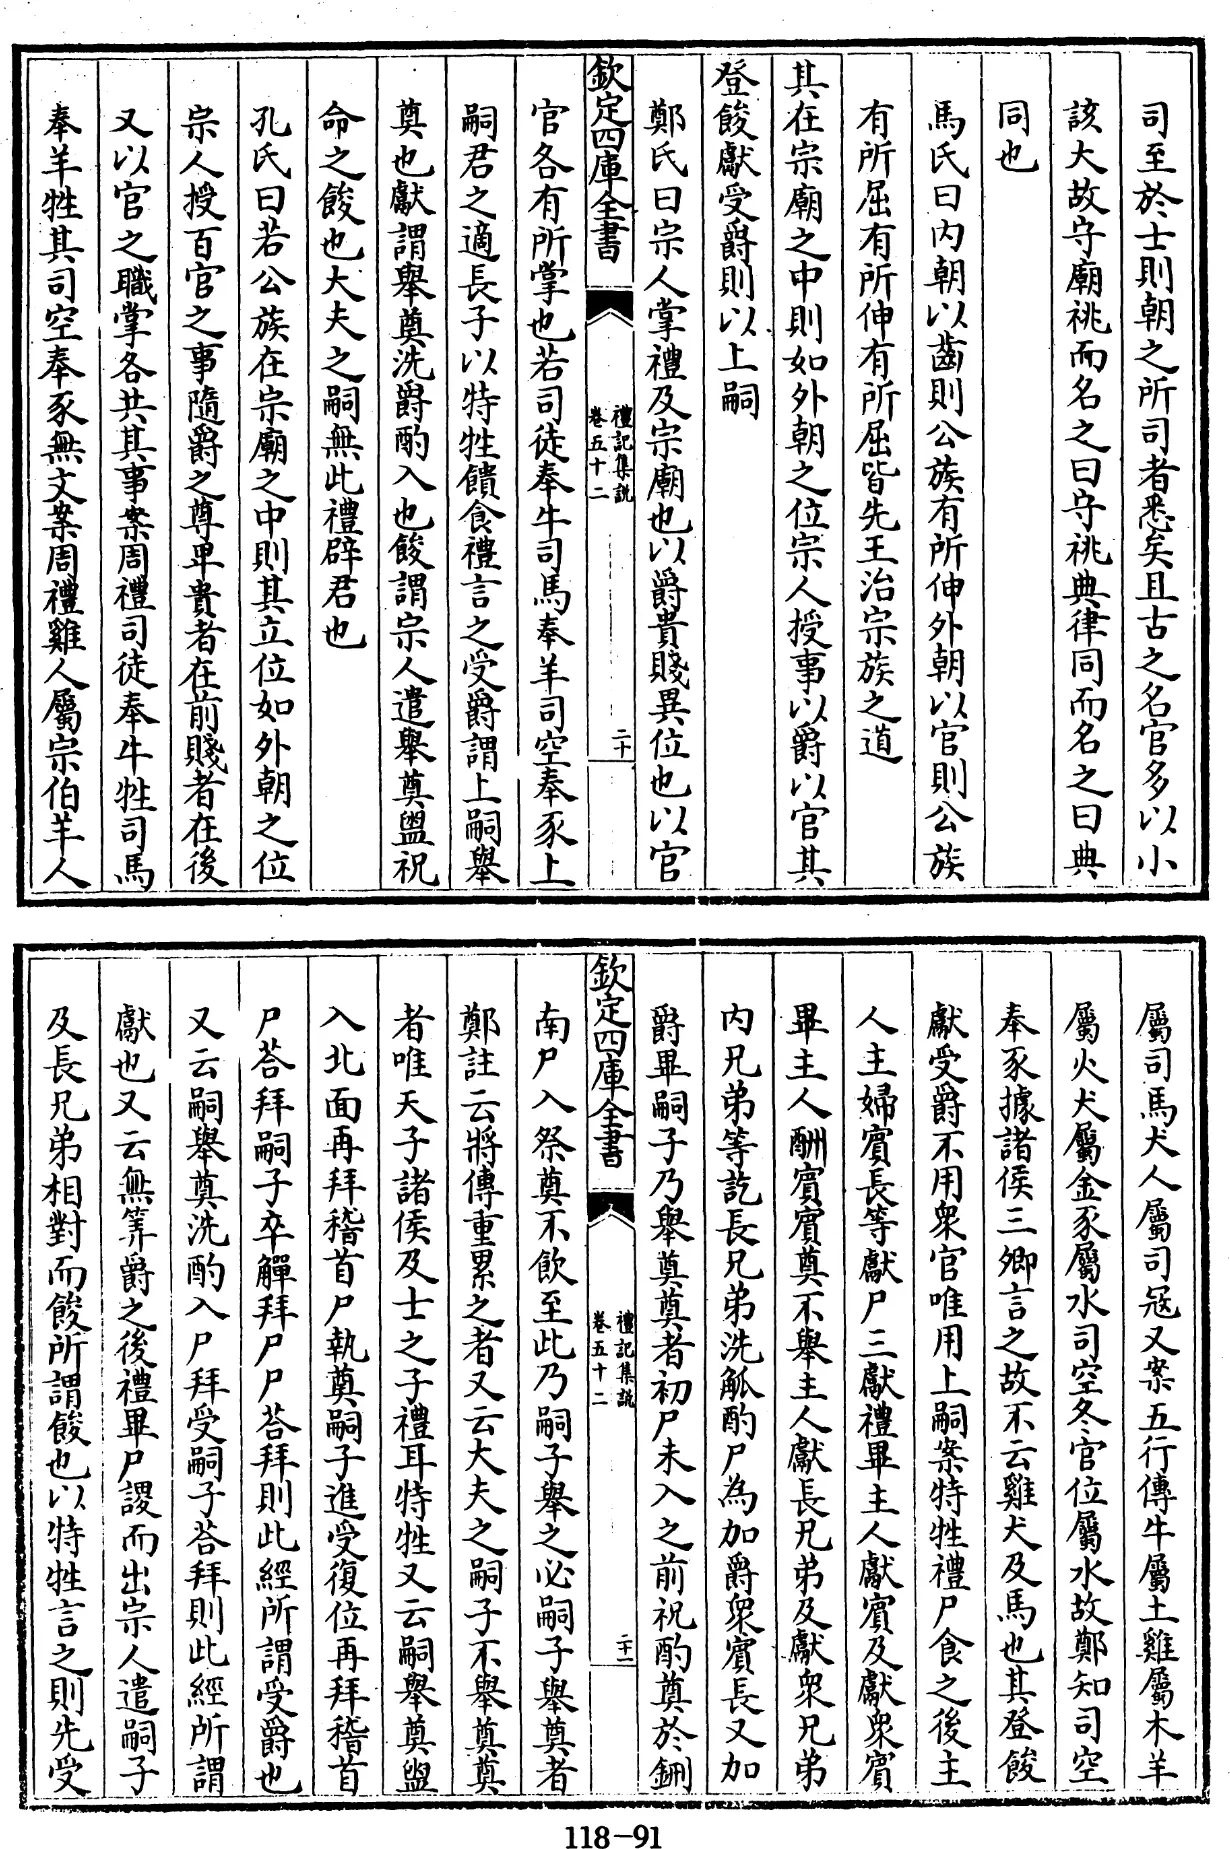 司至於士則朝之所司者悉矣且古之名官多以小
該大故守廟祧而名之曰守祧典律同而名之曰典
同也
馬氏曰内朝以齒則公族有所伸外朝以官則公族
有所屈有所伸有所屈皆先王治宗族之道
其在宗廟之中則如外朝之位宗人授事以爵以官其
登餕獻受爵則以上嗣
鄭氏曰宗人掌禮及宗廟也以爵貴賤異位也以官
欽定四庫全書
禮記集說
卷五十二
二十
官各有所掌也若司徒奉牛司馬奉羊司空奉豕上
嗣君之適長子以特牲饋食禮言之受爵謂上嗣舉
奠也獻謂舉奠洗爵酌入也餕謂宗人遣舉奠盥祝
命之餕也大夫之嗣無此禮辟君也
孔氏曰若公族在宗廟之中則其立位如外朝之位
宗人授百官之事隨爵之尊卑貴者在前賤者在後
又以官之職掌各共其事案周禮司徒奉牛牲司馬
奉羊牲其司空奉豕無文案周禮雞人屬宗伯羊人
屬司馬犬人屬司寇又案五行傳牛屬土雞屬木羊
屬火犬屬金豕屬水司空冬官位屬水故鄭知司空
奉豕據諸侯三卿言之故不云雞犬及馬也其登餕
獻受爵不用衆官唯用上嗣案特牲禮尸食之後主
人主婦賓長等獻尸三獻禮畢主人獻賓及獻衆賓
畢主人酬賓賓奠不舉主人獻長兄弟及獻衆兄弟
内兄弟等訖長兄弟洗觚酌尸為加爵衆賓長又加
爵畢嗣子乃舉奠奠者初尸未入之前祝酌奠於鉶
欽定四庫全書
禮記集說
卷五十二
二十一
南尸入祭奠不飲至此乃嗣子舉之必嗣子舉奠者
鄭註云將傳重累之者又云大夫之嗣子不舉奠奠
者唯天子諸侯及士之子禮耳特牲又云嗣舉奠盥
入北面再拜稽首尸執奠嗣子進受復位再拜稽首
尸荅拜嗣子卒觶拜尸尸荅拜則此經所謂受爵也
又云嗣舉奠洗酌入尸拜受嗣子荅拜則此經所謂
獻也又云無筭爵之後禮畢尸謖而出宗人遣嗣子
及長兄弟相對而餕所謂餕也以特牲言之則先受
118-91